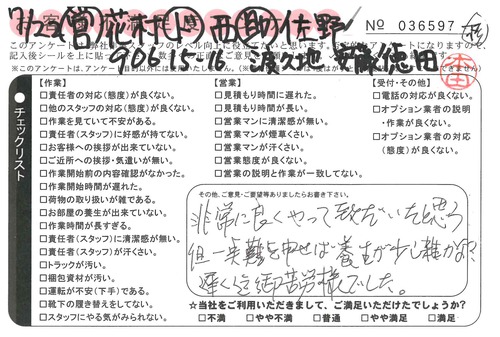 7/22 営 花村 上崎 西 助 佐野
№ 036597
906 15.16
徳田
チェックリスト
【作業】
□責任者の対応(態度)が良くない。
□他のスタッフの対応(態度)が良くない。
□作業を見ていて不安がある。
□責任者(スタッフ)に好感が持てない。
□お客様への挨拶が出来ていない。
□ご近所への挨拶・気遣いが無い。
□作業開始前の内容確認がなかった。
□作業開始時間が遅れた。
□荷物の取り扱いが雑である。
□お部屋の養生が出来ていない。
□作業時間が長すぎる。
□責任者(スタッフ)に清潔感が無い。
□責任者(スタッフ)が汗くさい。
□トラックが汚い。
□梱包資材が汚い。
□運転が不安(下手)である。
□靴下の履き替えをしてない。
□スタッフにやる気がみられない。
【営業】
□見積もり時間に遅れた。
□見積もり時間が長い。
□営業マンに清潔感が無い。
□営業マンが煙草くさい。
□営業マンが汗くさい。
□営業態度が良くない。
□営業の説明と作業が一致してない。
【受付・その他】
□電話の対応が良くない。
□オプション業者の説明
・作業が良くない。
□オプション業者の対応
(態度)が良くない。
その他、ご意見・ご要望等ありましたらお書き下さい。
非常に良くやって頂だいたと思う
但一点難を申せば養生が少し雑かな?
遅く迄御苦労様でした。
☆当社をご利用いただきまして、ご満足いただけたでしょうか?
□不満 □やや不満 □普通 □やや満足 □満足